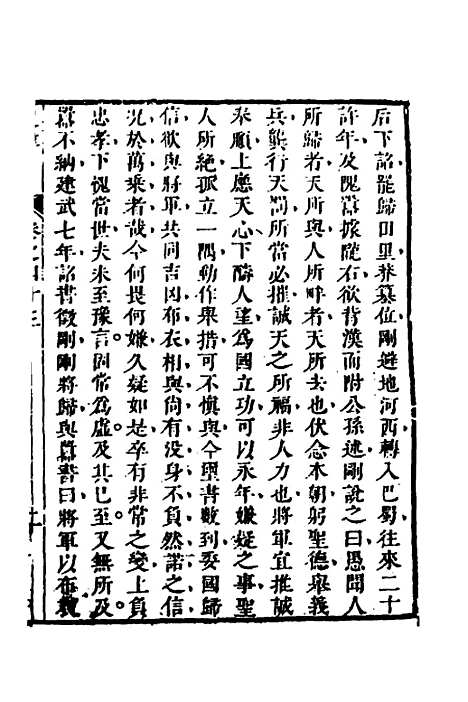 后下詔罷歸田里莽篡位剛避地河西轉入巴蜀往來二十
許年及隗囂據隴右欲背漢而附公孫述剛說之曰愚聞人
所歸者天所與人所畔者天所去也伏念本朝躬聖德舉義
兵龔行天罰所當必摧誠天之所福非人力也將軍宜推誠
奉順上應天心下酬人望為國立功可以永年嫌疑之事聖
人所絶孤立一隅動作舉措可不慎與今璽書數到委國歸
信欲與將軍共同吉凶布衣相與尚有没身不負然諾之信
况於萬乗者哉今何畏何嫌久疑如是卒有非常之變上負
忠孝下愧當世夫未至豫言固常為虚及其已至又無所及
囂不納建武七年詔書徵剛剛將歸與囂書曰將軍以布衣
卷之四十三